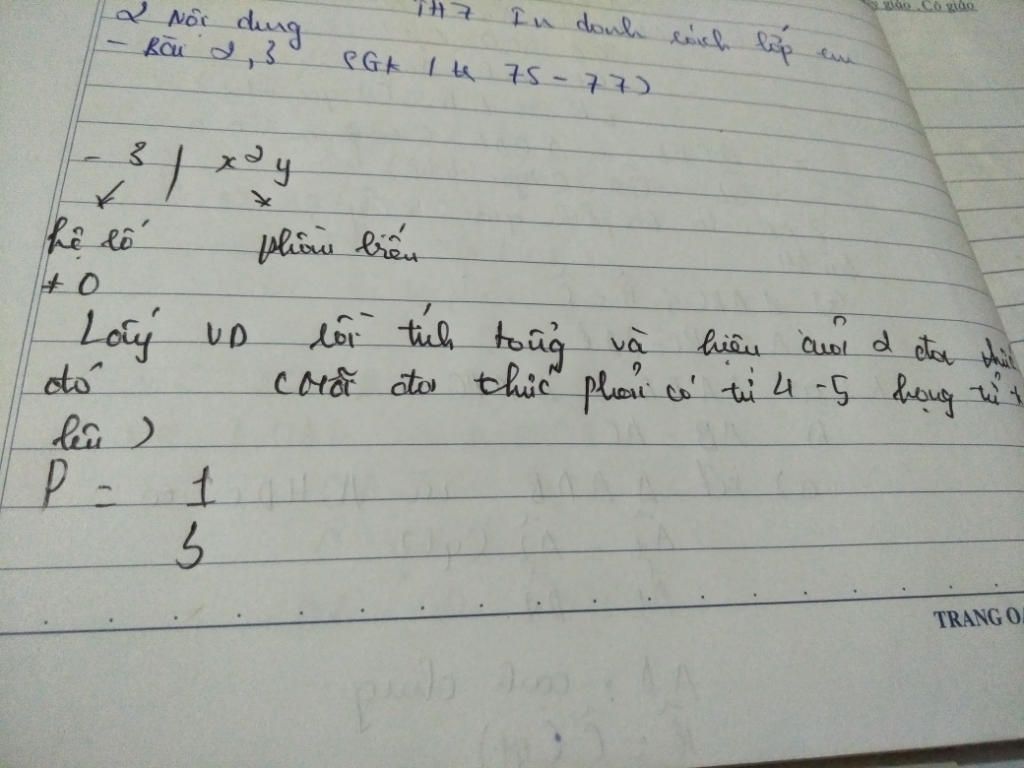 giáo, Cô giáo
2 Nội dung TH7 In danh sách lớp em
- Bài 2, 3 SGK / tr 75 - 77)
- 3 / x² y
hệ số phần biến
+ 0
Lấy VD rồi tính tổng và hiệu của 2 đa thức
đó (mỗi đa thức phải có từ 4 - 5 hạng tử trở
lên)
P = 1
5
TRANG